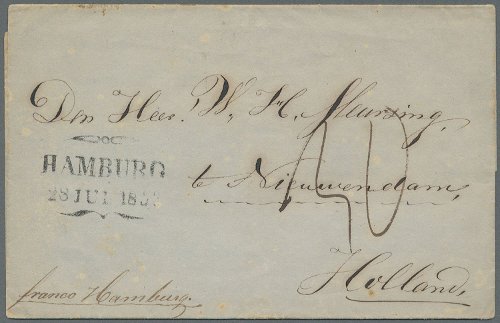 Den Heer W. H. Meursing,
HAMBURG
28 JUL 18
te Nieuwendam,
40
Holland,
franco Hamburg.